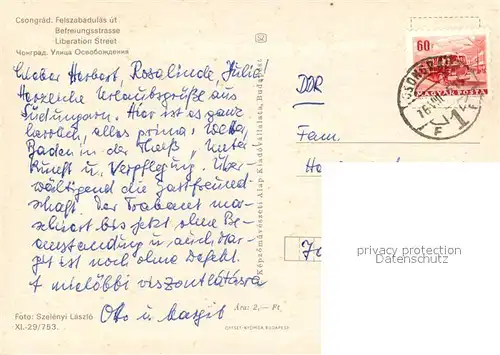 Csongrád. Felszabadulás út
Befreiungsstrasse
Liberation Street
Чонград. Улица Освобождения
Lieber Herbert, Rosalinde, Julia!
Herzliche Urlaubsgrüße aus
Südungarn. Hier ist es ganz
alles prima: Wetter,
Baden in der Theiß, Unter-
kunft u. Verpflegung. Über-
wältigend die Gastfreund-
schaft. Der Trabant mar-
schiert bis jetzt ohne Be-
anstandung u. auch
ist noch ohne Defekt.
A mielőbbi viszontlátásra
Otto u. Margit
Foto: Szelényi László
XI.-29/753.
Ára: 2,— Ft
OFFSET-NYOMDA BUDAPEST
Képzőművészeti Alap Kiadóvállalata, Budapest
52
60
MAGYAR POSTA
CSONGRÁD
DDR
Fam.
privacy protection
Datenschutz